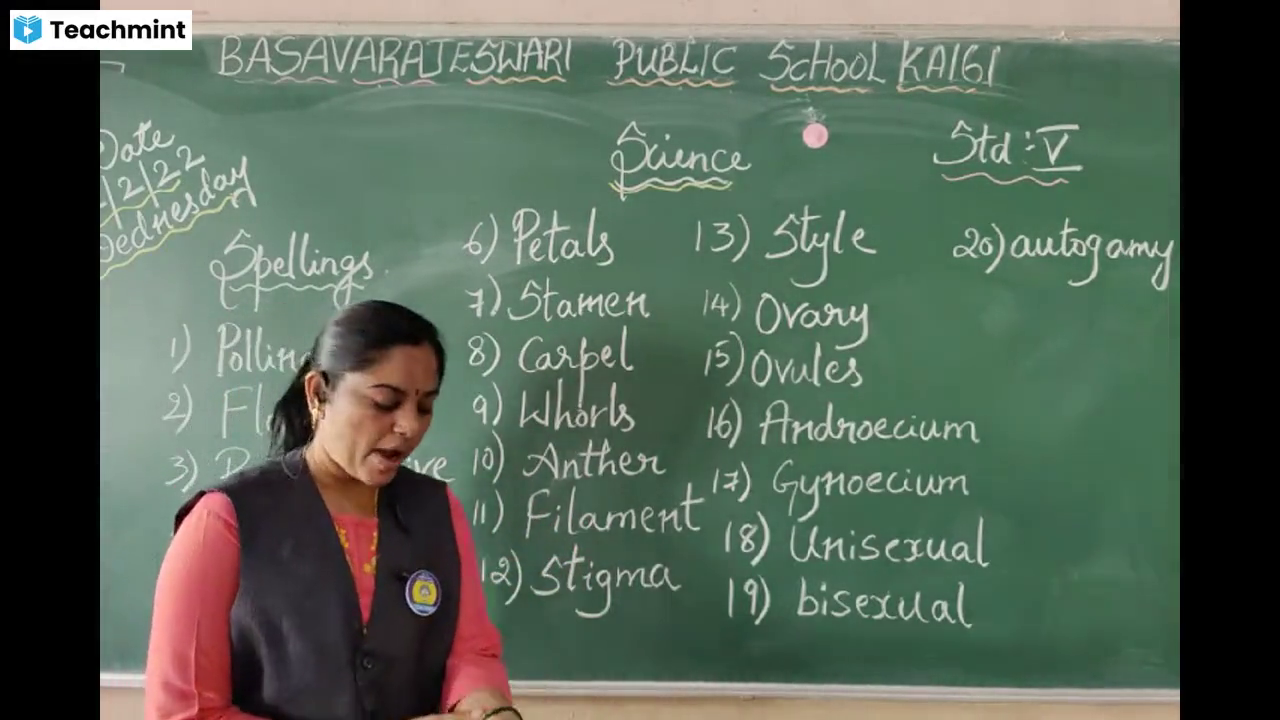 Teachmint
BASAVARAJESWARI PUBLIC SCHOOL KAIGI
Date
/2/22
Wednesday
Science
Std : V
Spellings
1)
2)
3)
6) Petals
7) Stamen
8) Carpel
9) Whorls
10) Anther
11) Filament
12) Stigma
13) Style
14) Ovary
15) Ovules
16) Androecium
17) Gynoecium
18) Unisexual
19) bisexual
20) autogamy